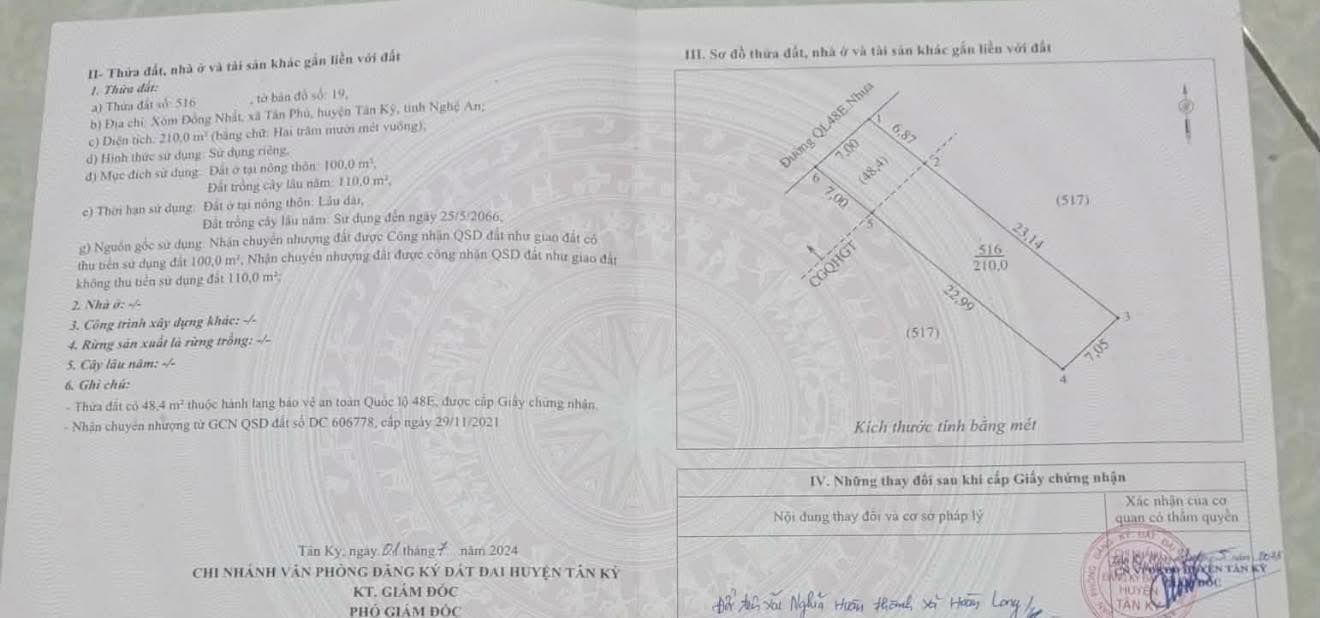 II- Thửa đất, nhà ở và tài sản khác gắn liền với đất
1. Thửa đất:
a) Thửa đất số: 516 , tờ bản đồ số: 19,
b) Địa chỉ: Xóm Đồng Nhất, xã Tân Phú, huyện Tân Kỳ, tỉnh Nghệ An;
c) Diện tích: 210,0 m² (bằng chữ: Hai trăm mười mét vuông);
d) Hình thức sử dụng: Sử dụng riêng,
đ) Mục đích sử dụng: Đất ở tại nông thôn: 100,0 m²,
Đất trồng cây lâu năm: 110,0 m²,
e) Thời hạn sử dụng: Đất ở tại nông thôn: Lâu dài,
Đất trồng cây lâu năm: Sử dụng đến ngày 25/5/2066,
g) Nguồn gốc sử dụng: Nhận chuyển nhượng đất được Công nhận QSD đất như giao đất có
thu tiền sử dụng đất 100,0 m², Nhận chuyển nhượng đất được công nhận QSD đất như giao đất
không thu tiền sử dụng đất 110,0 m²;
2. Nhà ở: -/-
3. Công trình xây dựng khác: -/-
4. Rừng sản xuất là rừng trồng: -/-
5. Cây lâu năm: -/-
6. Ghi chú:
- Thửa đất có 48,4 m² thuộc hành lang bảo vệ an toàn Quốc lộ 48E, được cấp Giấy chứng nhận.
- Nhận chuyển nhượng từ GCN QSD đất số DC 606778, cấp ngày 29/11/2021
Tân Kỳ, ngày 01 tháng 7 năm 2024
CHI NHÁNH VĂN PHÒNG ĐĂNG KÝ ĐẤT ĐAI HUYỆN TÂN KỲ
KT. GIÁM ĐỐC
PHÓ GIÁM ĐỐC
III. Sơ đồ thửa đất, nhà ở và tài sản khác gắn liền với đất
Đường QL48E Nhựa
1
6,87
7,00
2
(48,4)
6
7,00
5
(517)
23,14
CGQHGT
516
210,0
22,99
(517)
3
7,05
4
Kích thước tính bằng mét
IV. Những thay đổi sau khi cấp Giấy chứng nhận
Nội dung thay đổi và cơ sở pháp lý
Xác nhận của cơ
quan có thẩm quyền
HUYỆN TÂN KỲ
HUYỆN
TÂN KỲ
xã Nghĩa Hoàn thành xã Hoàn Long